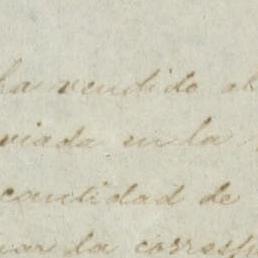 ha vendido al
viada en la
cantidad de
nar la corresp